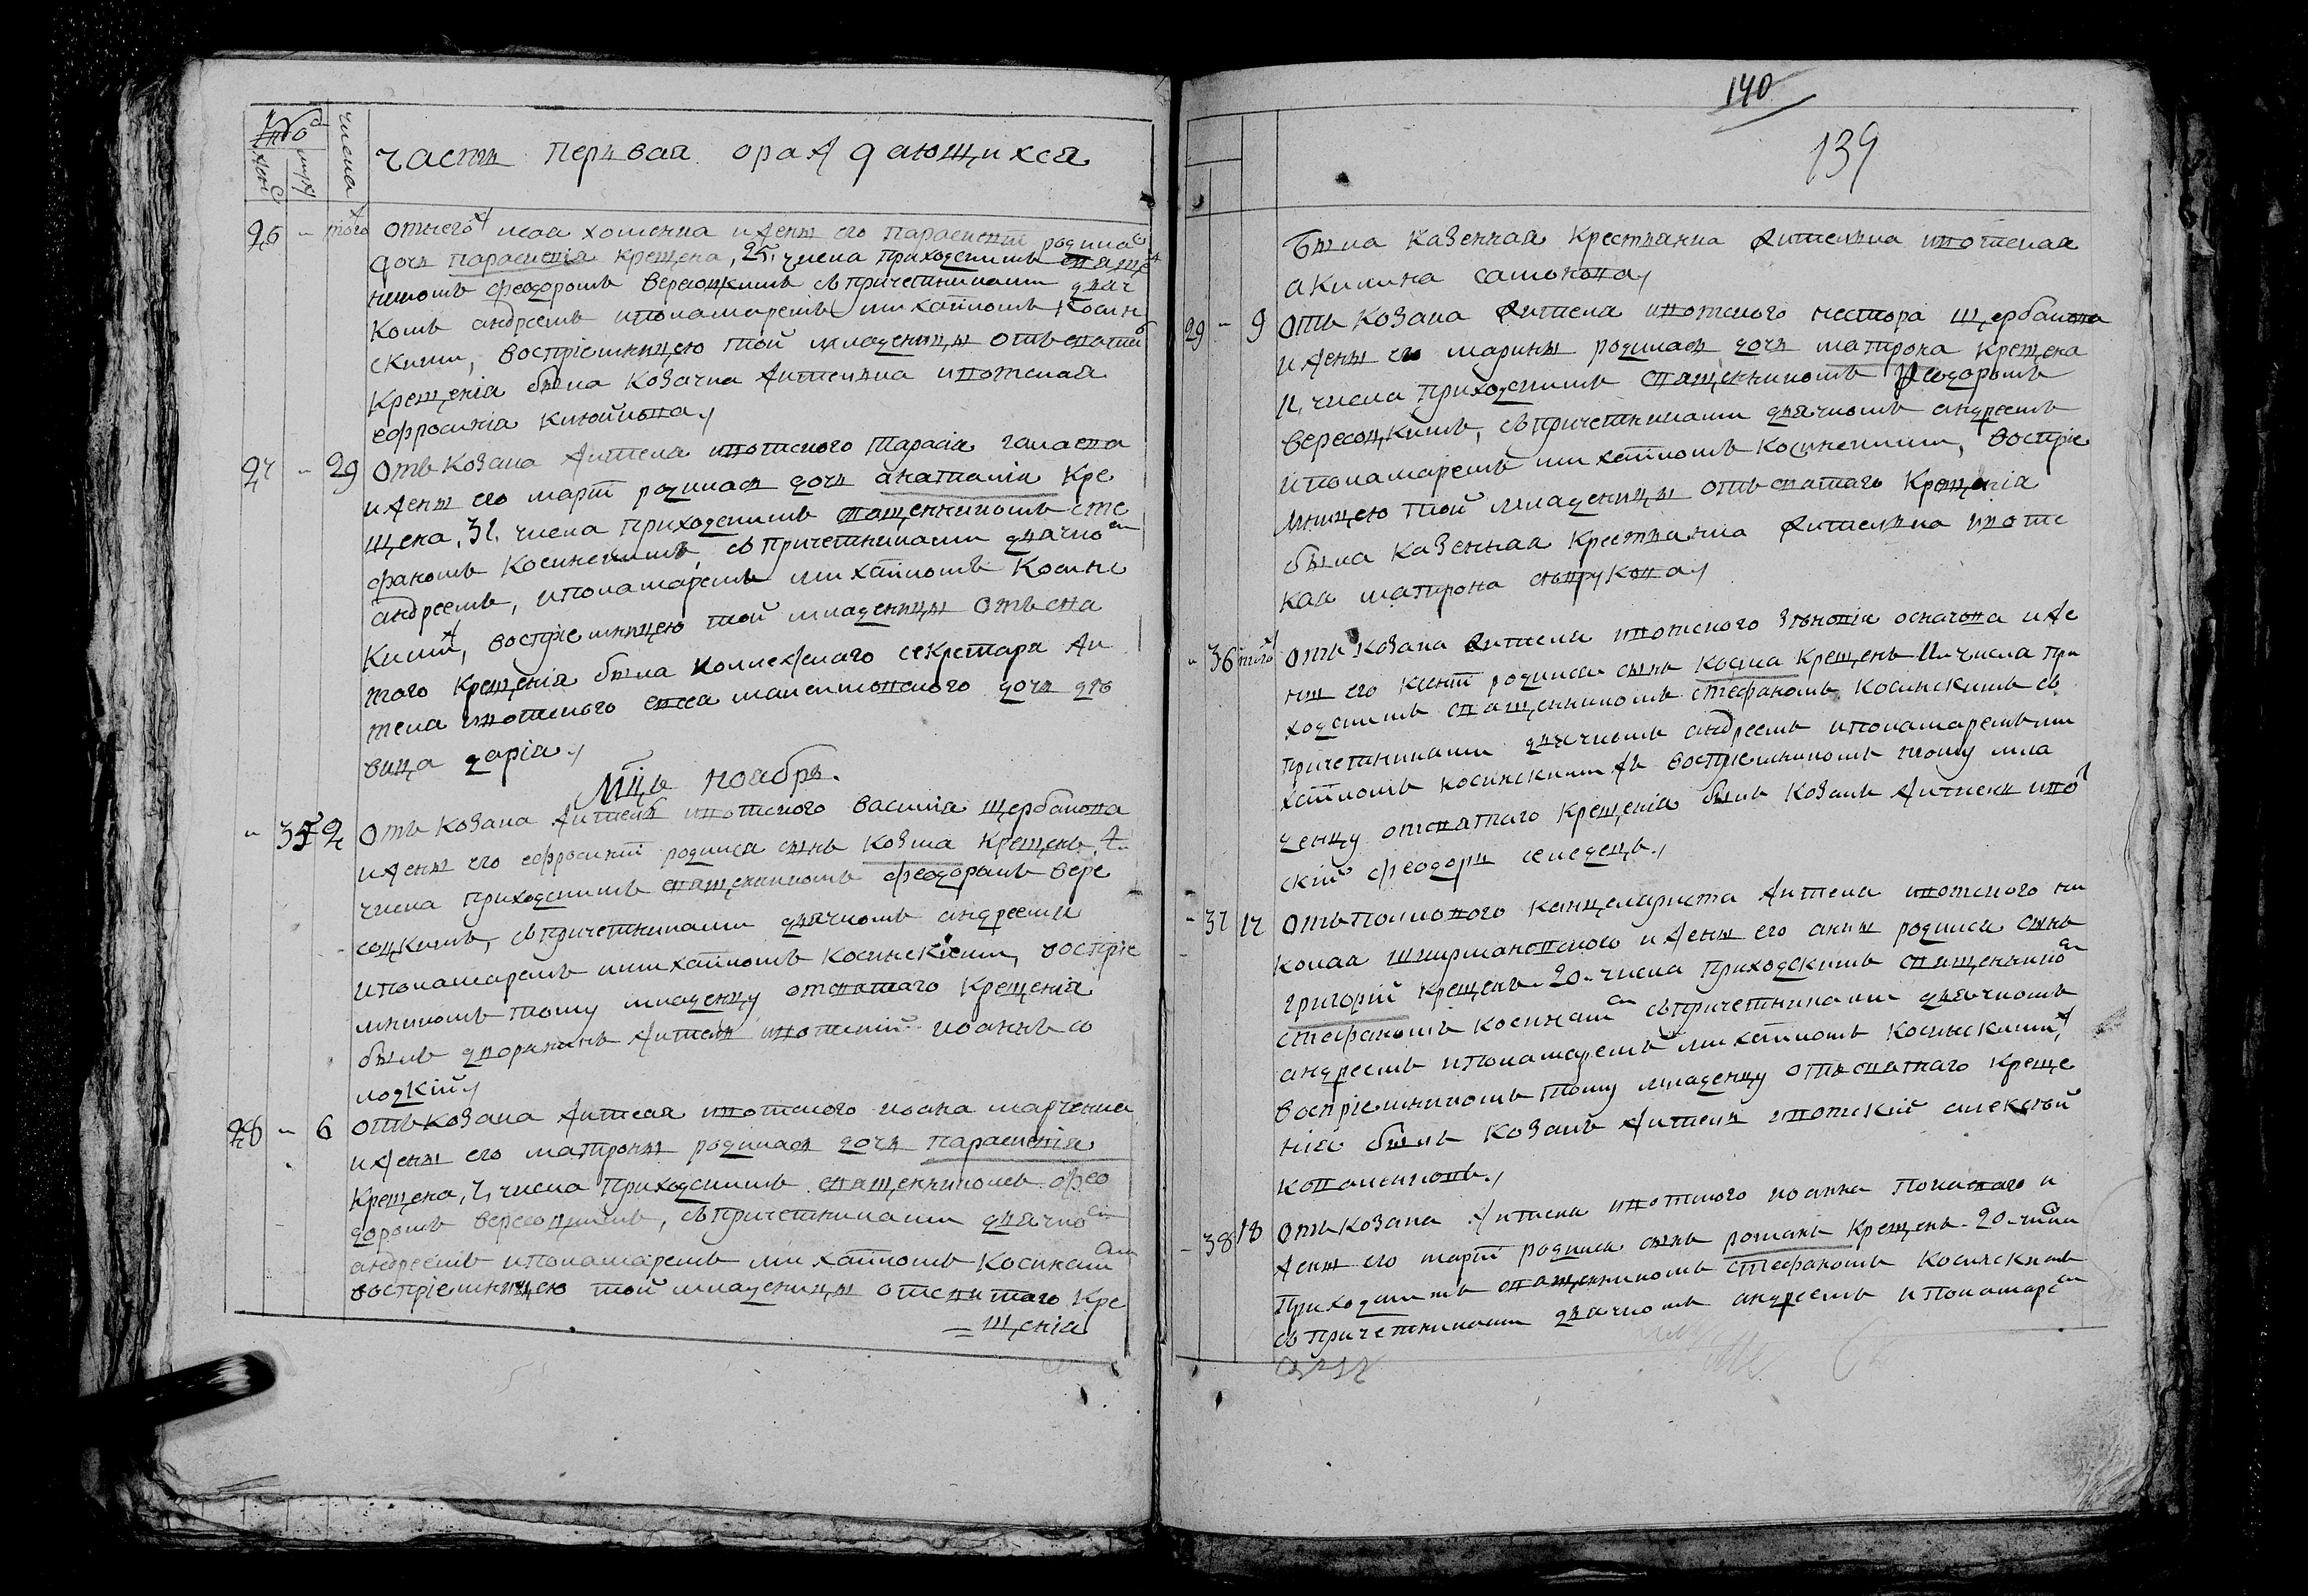 Число
жен муж
числа
часть первая о раждающихся
26 - того отъ него исаа хоменка и жены его параскевіи родилас
дочъ параскевія крещена, 25, числа приходскимъ свяще
никомъ феодоромъ вересоцкимъ съ причетниками дяч
комъ андреемъ и пономаремъ михаиломъ косин
скими, воспріемницею той младеницы отъ святого
крещенія была козачка жителька ипотская
ефросинія
27 - 29 отъ козака жителя ипотского тарасія
и жены его марѳи родилася дочъ анатолія кре
щена, 31, числа приходскимъ священникомъ сте
фаномъ косинскимъ, съ причетниками дячком
андреемъ, и пономаремъ михаиломъ косинс
кими, воспріемницею той младеницы отъ свя
того крещенія была коллежского секретаря жи
теля ипотского максимовского дочъ дѣ
вица дарія
Мцъ ноябрь.
- 35 2 отъ козака жителя ипотского василія щербакова
и жены его ефросиніи родился сынъ козма крещенъ 4
числа приходскимъ священникомъ феодоромъ вере
соцкимъ, съ причетниками дячкомъ андреемъ
и пономаремъ михаиломъ косинскіеми, воспріе
мникомъ тому младенцу отъ святаго крещенія
былъ дворянинъ житель ипотскій иоаннъ со
лодкій
28 - 6 отъ козака жителя ипотского иоана марченка
и жены его матроны родилася дочъ параскевія
крещена, 7, числа приходскимъ священникомъ фео
доромъ вересоцкимъ, съ причетниками дячком
андреемъ и пономаремъ михаиломъ косинским
воспріемницею той младеницы отъ святого кре
= щенія
140
139
была казенная крестьянка жителька ипотская
акилина самокова
29 - 9 отъ козака жителя ипотского нестора щербакова
и жены его марины родилася дочъ матрона крещена
11, числа приходскимъ священникомъ Феодоромъ
вересоцкимъ, съ причетниками дячкомъ андреемъ
и пономаремъ михаиломъ косинскими, воспріе
мницею той младеницы отъ святаго крещенія
была казенная крестьянка жителька ипотс
кая матрона
- 36 того отъ козака жителя ипотского зѣновія осначова и же
ны его родился сынъ косма крещенъ 11 числа при
ходскимъ священникомъ стефаномъ косинскимъ съ
причетниками дячкомъ андреемъ и пономаремъ ми
хаиломъ косинскими же воспріемникомъ тому мла
денцу отъ святаго крещенія былъ козакъ житель ипот
скій феодоръ селедецъ
- 37 17 отъ полкового канцеляриста жителя ипотского ни
колая и жены его анны родился сынъ
григорій крещенъ 20 числа приходскимъ священником
стефаномъ косинским съ причетниками дячкомъ
андреемъ и пономаремъ михаиломъ косинскими,
воспріемникомъ тому младенцу отъ святаго креще
нія былъ козакъ житель ипотскій алексей
коваленковъ
- 38 18 отъ козака жителя ипотского иоанна и
жены его марѳи родился сынъ романъ крещенъ 20 числа
приходскимъ священникомъ стефаномъ косинскимъ
съ причетниками дячкомъ андреемъ и пономарем